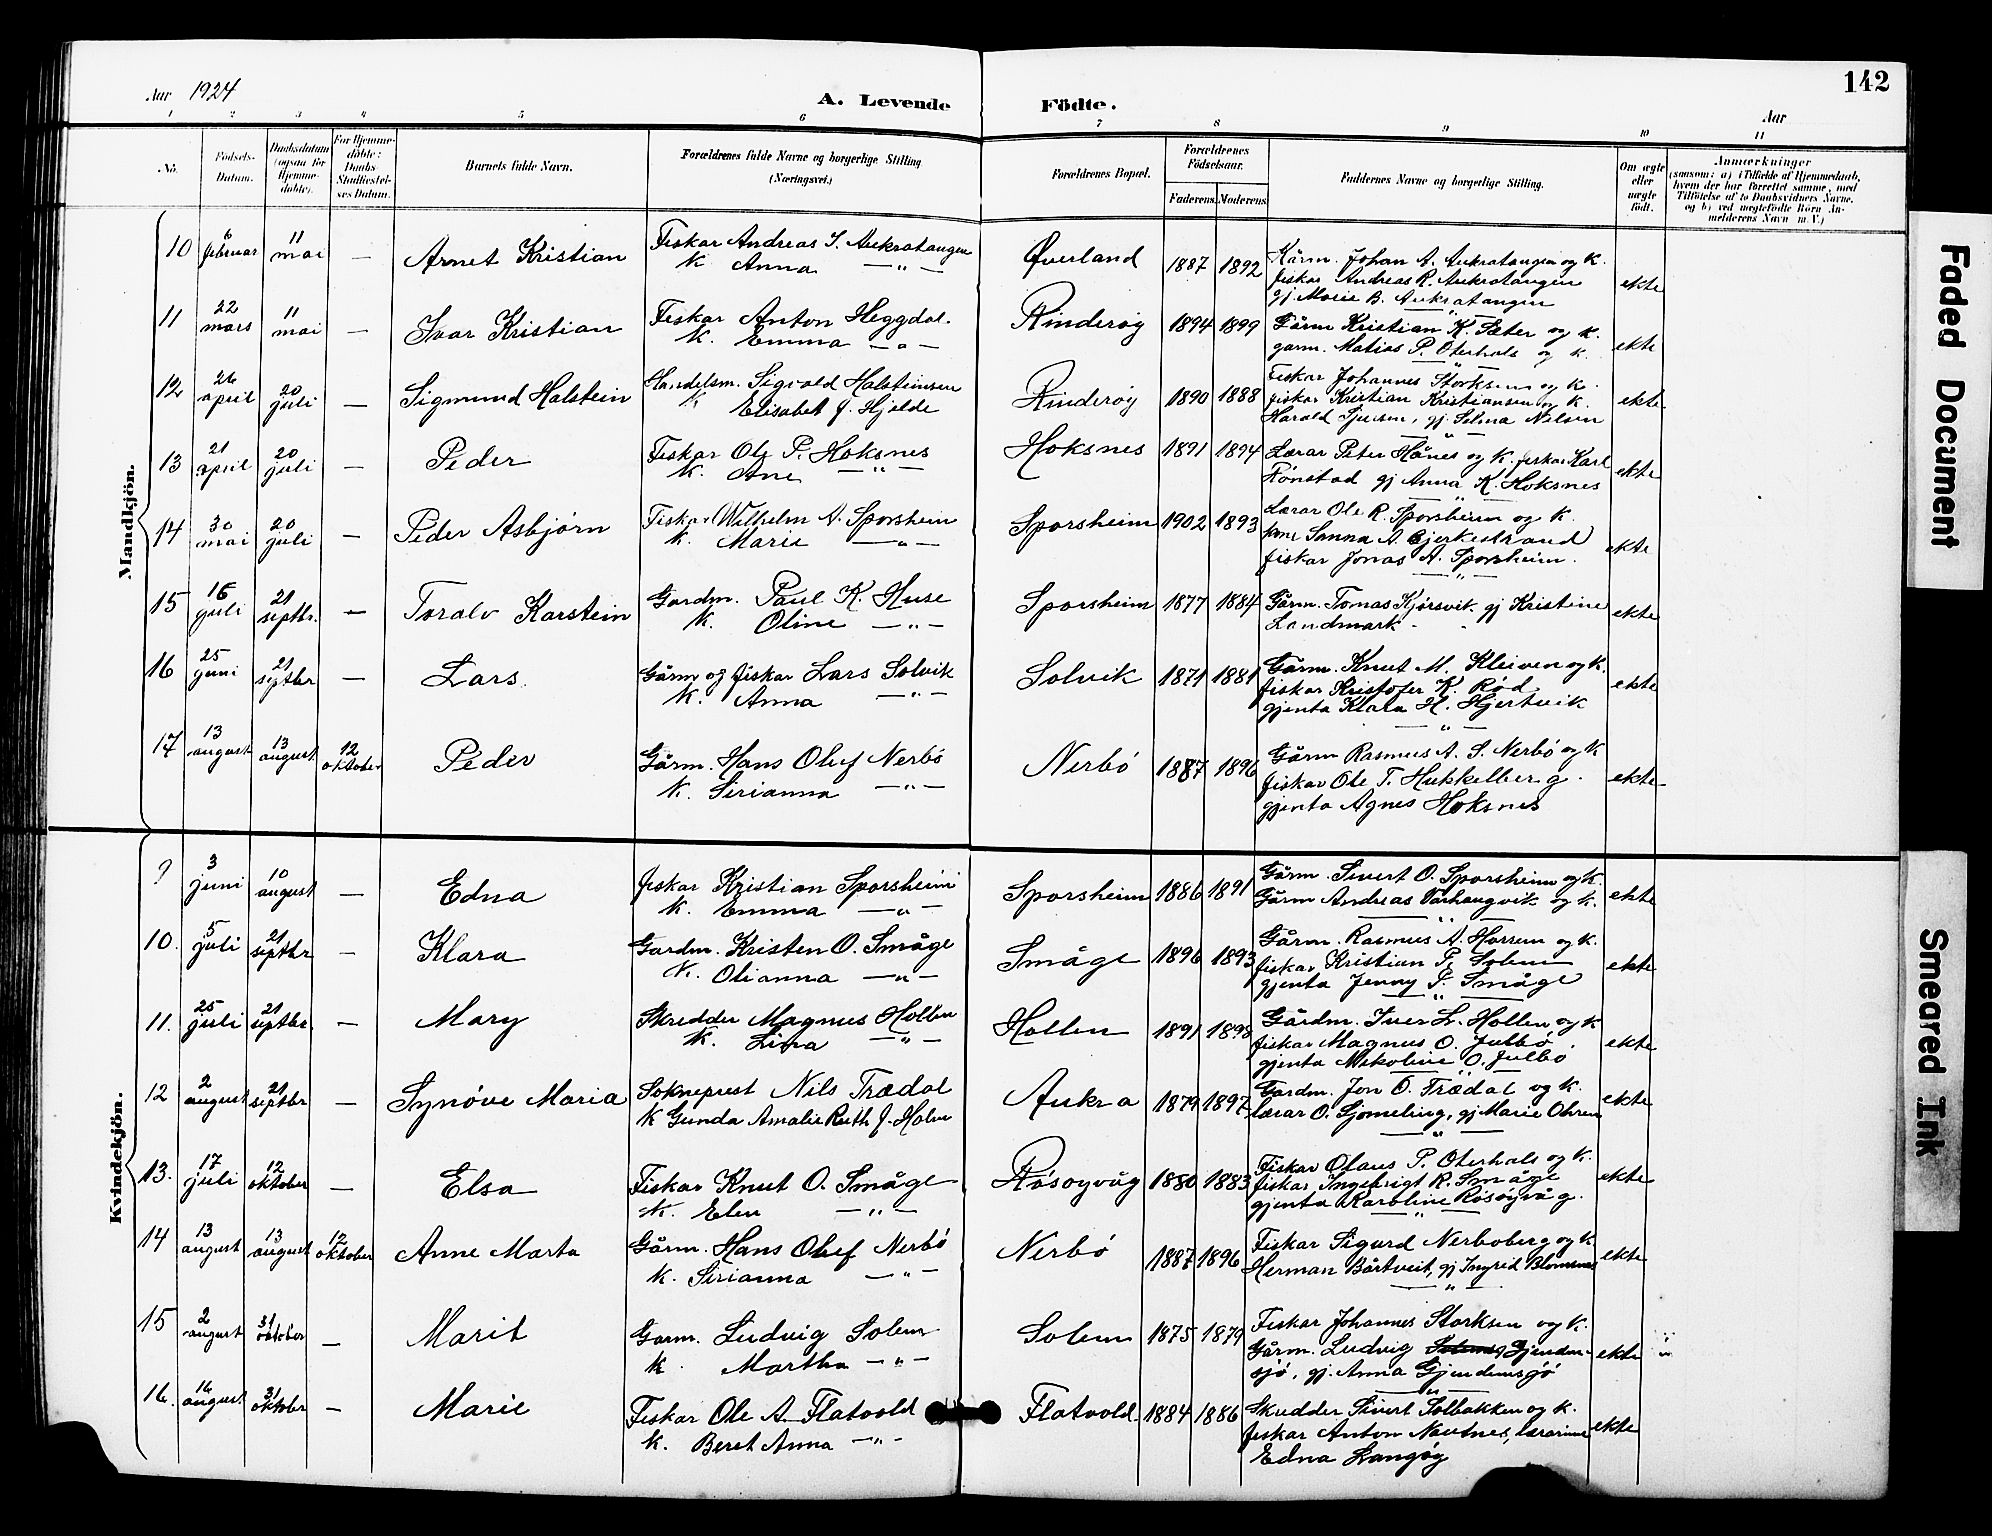 142
Aar 1924
A. Levende Födte.
Aar
1 2 3 4 5 6 7 8 9 10 11
No.
Födsels-Datum.
Daabsdatum (ogsaa for Hjemme-döbte).
For Hjemme-döbte: Daabs Stadfæstel-ses Datum.
Barnets fulde Navn.
Forældrenes fulde Navne og borgerlige Stilling (Næringsvei.)
Forældrenes Bopæl.
Forældrenes Födselsaar.
Faderens. Moderens.
Faddernes Navne og borgerlige Stilling.
Om ægte eller uægte födt.
Anmærkninger
(saasom: a) i Tilfælde af Hjemmedaab,
hvem der har forrettet samme, med
Tilföielse af to Daabsvidners Navne.
og b) ved uægtefödte Börn An-
melderens Navn m. V.)
Mandkjön.
10 6 februar 11 mai — Arnet Kristian Fiskar Andreas I. Aukratangen Øverland 1887 1892 Kårm. Johan A. Aukratangen og k. ekte
K. Anna —"— fiskar Andreas R. Aukratangen
gj. Marie B. Aukratangen
11 22 mars 11 mai — Ivar Kristian Fiskar Anton Heggdal. Rinderøy 1894 1899 Gårm Kristian K. Sæter og k. ekte
K. Emma —"— garm. Matias P. Oterhals og k.
12 26 april 20 juli — Sigmund Halstein Handelsm. Sigvald Halsteinsen Rinderøy 1890 1888 Fiskar Johannes Storksen og k. ekte
K Elisabet f. Hjelde fiskar Kristian Kristiansen og k.
Harald Sjursen, gj. Selma Nelsen
13 21 april 20 juli — Peder Fiskar Ole P. Hoksnes Hoksnes 1891 1894 Lærar Peter Hånes og k. fiskar Karl ekte
K. Ane —"— Rønstad gj Anna K. Hoksnes
14 30 mai 20 juli — Peder Asbjørn Fiskar Wilhelm A. Sporsheim Sporsheim 1902 1893 Lærar Ole R. Sporsheim og k. ekte
K. Marie —"— Sanna A. Bjerkestrand
fiskar Jonas A. Sporsheim.
15 16 juli 21 septbr. — Toralv Karstein Gardm. Paul K. Huse Sporsheim 1877 1884 Gårm. Tomas Kjørsvik. gj Kristine ekte
K. Oline —"— Landmark
16 25 juni 21 septbr — Lars Gårm og fiskar Lars Solvik Solvik 1871 1881 Gårm. Knut M. Kleiven og k. ekte
K. Anna —"— fiskar Kristofer K. Rød
gjenta Klara H. Hjertvik
17 13 august 13 august 12 oktober Peder Gårm. Hans Oluf Nerbö Nerbö 1887 1896 Gårm Rasmus A. S. Nerbö og k ekte
K. Sirianna —"— fiskar Ole T. Hukkelberg.
gjenta Agnes Hoksnes
Kvindekjön.
9 3 juni 10 august — Edna fiskar Kristian Sporsheim Sporsheim 1886 1891 Gårm. Sivert O. Sporsheim og k. ekte
K. Emma —"— Gårm Andreas Varhaugvik og k.
10. 5 juli 21 septbr — Klara Gardm. Kristen O. Småge Småge 1896 1893 Gårm. Rasmus A. Horsem og k. ekte
K. Olianna —"— fiskar Kristian P. Solem
gjenta Jenny P. Småge
11. 25 juli 21 septbr. — Mary Skredder Magnus Hollen Hollen 1891 1898 Gårdm. Iver L. Hollen og k ekte
K. Lina —"— fiskar Magnus O. Julbö
gjenta Nikoline O. Julbö
12 2 august 21 septbr — Synøve Maria Sokneprest Nils Trædal Aukra 1879 1897 Gardm. Jon O. Trædal og k. ekte
K Gunda Amalie Ruth f. Holm lærar O. Sjømeling, gj Marie Ohren
13. 17 juli 12 oktober — Elsa Fiskar Knut O. Småge Røsoyvåg 1880 1883 Fiskar Olaus P. Oterhals og k. ekte
K. Elen —"— fiskar Ingebrigt R. Småge
gjenta Karoline Røsoyvåg.
14 13 august 13 august 12 oktober Anne Marta Gårm. Hans Oluf Nerbö Nerbö 1887 1896 Fiskar Sigurd Nerboberg og k ekte
K. Sirianna —"— Herman Bårtveit, gj Ingrid Blomsnes
15 2 august 31 oktober — Marit Garm. Ludvig Solem Solem 1875 1879 Fiskar Johannes Storksen og k. ekte
K. Martha —"— Gårm. Ludvig Gjendem-
sjö, gj. Anna Gjendemsjö
16. 16 august 31 oktober — Marie Fiskar Ole A. Flatvold Flatvold 1884 1886 Skredder Sivert Solbakken og k. ekte
K. Beret Anna —"— fiskar Anton Nautnes, lærarinne
Edna Langøy
Faded Document
Smeared Ink